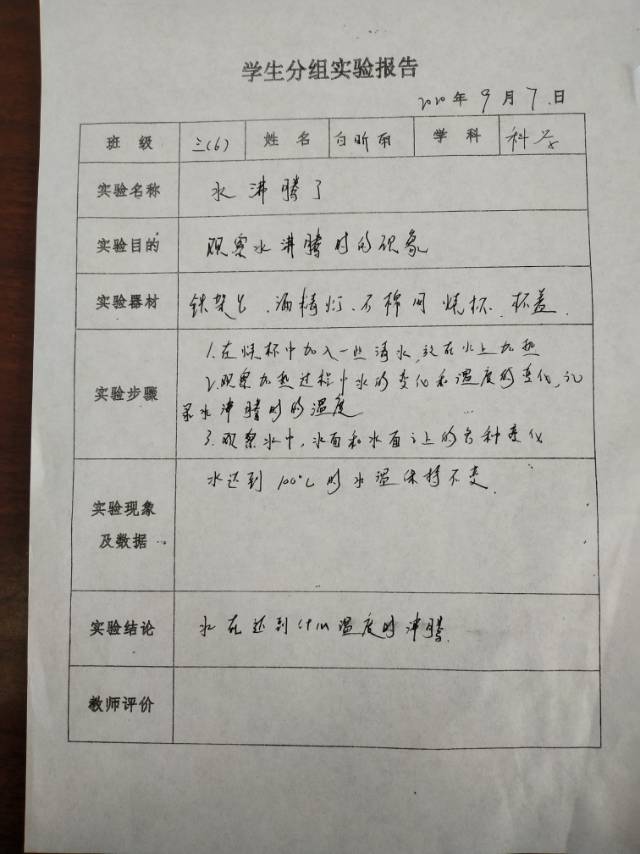 学生分组实验报告
2020年9月7日
班级 三(6) 姓名 白昕雨 学科 科学
实验名称 水沸腾了
实验目的 观察水沸腾时的现象
实验器材 铁架台、酒精灯、石棉网 烧杯、杯盖
1.在烧杯中加入一些清水,放在火上加热
2.观察加热过程中水的变化和温度的变化,记
实验步骤
录水沸腾时的温度
3.观察水中,水面和水面上的各种变化
水达到100℃时水温保持不变
实验现象
及数据
实验结论 水在达到什么温度时沸腾
教师评价